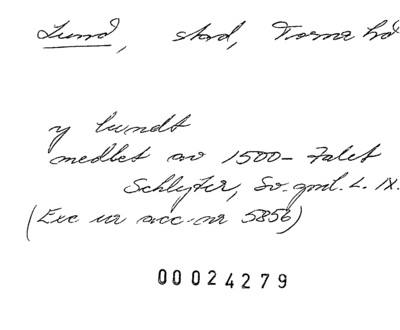 Lund, stad, Torna hd
y lundt
medlet av 1500-talet
Schlyter, Sv. gml. L. IX.
(Exc ur acc-nr 5856)
00024279